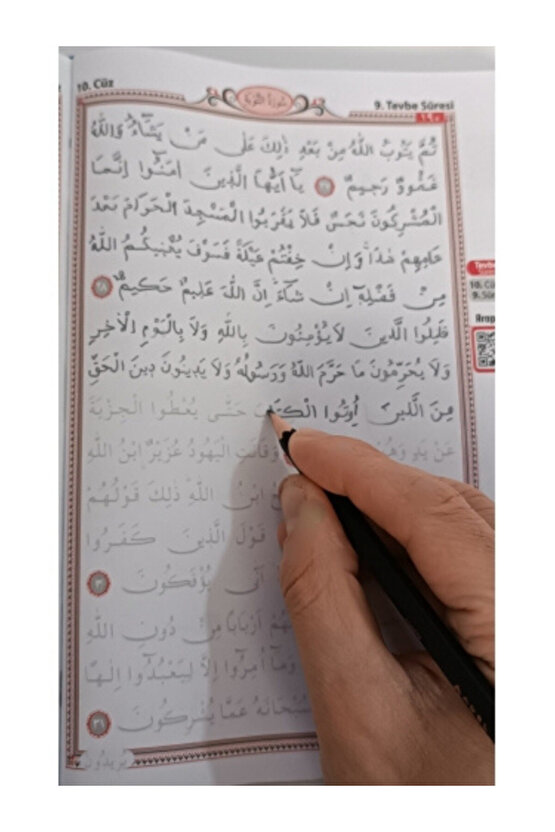 10. Cüz
سورة التوبة
9. Tevbe Sûresi
١٩٠
ثُمَّ يَتُوبُ اللّٰهُ مِنْ بَعْدِ ذٰلِكَ عَلٰى مَنْ يَشَٓاءُ وَاللّٰهُ
غَفُورٌ رَحِيمٌ ٢٧ يَٓا اَيُّهَا الَّذِينَ اٰمَنُٓوا اِنَّمَا
الْمُشْرِكُونَ نَجَسٌ فَلَا يَقْرَبُوا الْمَسْجِدَ الْحَرَامَ بَعْدَ
عَامِهِمْ هٰذَا وَاِنْ خِفْتُمْ عَيْلَةً فَسَوْفَ يُغْنِيكُمُ اللّٰهُ
مِنْ فَضْلِهِٓ اِنْ شَٓاءَ اِنَّ اللّٰهَ عَلِيمٌ حَكِيمٌ ٢٨
قَاتِلُوا الَّذِينَ لَا يُؤْمِنُونَ بِاللّٰهِ وَلَا بِالْيَوْمِ الْاٰخِرِ
وَلَا يُحَرِّمُونَ مَا حَرَّمَ اللّٰهُ وَرَسُولُهُ وَلَا يَدِينُونَ دِينَ الْحَقِّ
مِنَ الَّذِينَ اُو۫تُوا الْكِتَابَ حَتّٰى يُعْطُوا الْجِزْيَةَ
عَنْ يَدٍ وَهُمْ وَقَالَتِ الْيَهُودُ عُزَيْرٌ ابْنُ اللّٰهِ
ابْنُ اللّٰهِ ذٰلِكَ قَوْلُهُمْ
قَوْلَ الَّذِينَ كَفَرُوا
اَنّٰى يُؤْفَكُونَ ٣٠
اَرْبَابًا مِنْ دُونِ اللّٰهِ
وَمَٓا اُمِرُٓوا اِلَّا لِيَعْبُدُٓوا اِلٰهًا
سُبْحَانَهُ عَمَّا يُشْرِكُونَ ٣١
يُرِيدُونَ
10. Cü
9. Sûr